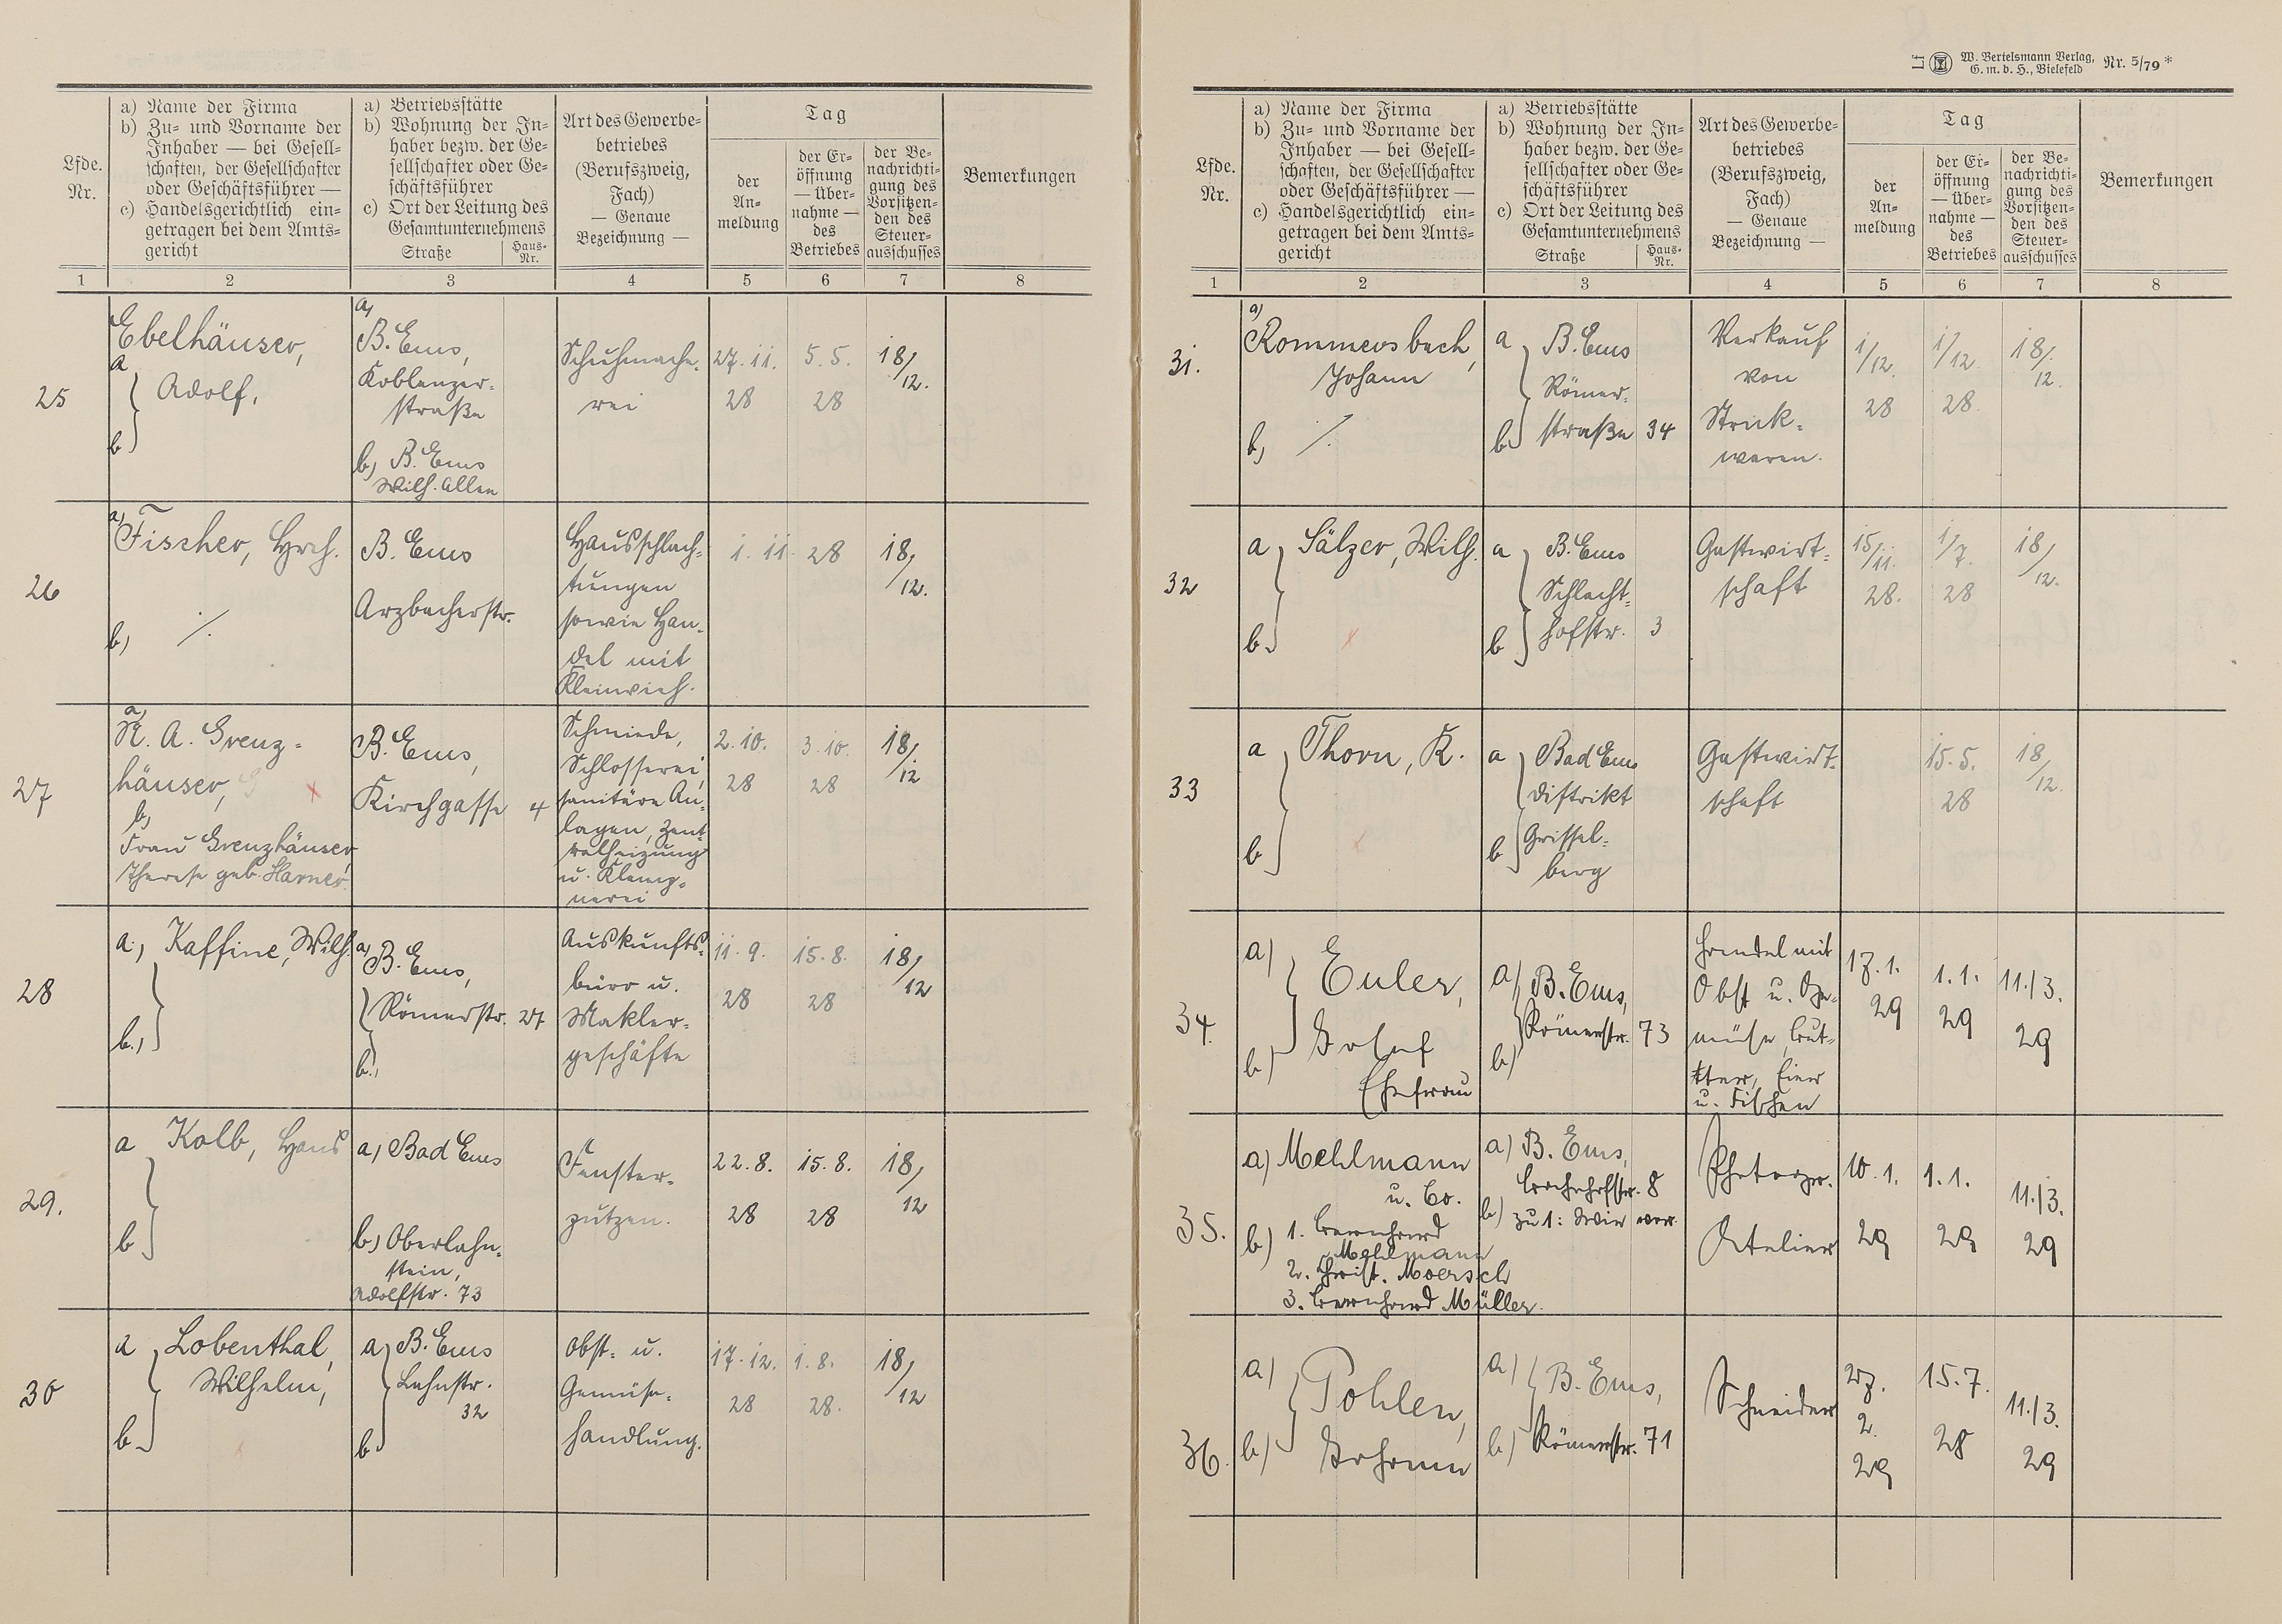 Lfde. Nr.
a) Name der Firma
b) Zu- und Vorname der
Inhaber — bei Gesell-
schaften, der Gesellschafter
oder Geschäftsführer —
c) Handelsgerichtlich ein-
getragen bei dem Amts-
gericht
a) Betriebsstätte
b) Wohnung der In-
haber bezw. der Ge-
sellschafter oder Ge-
schäftsführer
c) Ort der Leitung des
Gesamtunternehmens
Straße Haus-Nr.
Art des Gewerbe-
betriebes
(Berufszweig,
Fach)
— Genaue
Bezeichnung —
Tag
der
An-
meldung
der Er-
öffnung
— Über-
nahme —
des
Betriebes
der Be-
nachrichti-
gung des
Vorsitzen-
den des
Steuer-
ausschusses
Bemerkungen
1 2 3 4 5 6 7 8
25
Ebelhäuser,
a
Adolf,
b
a)
B. Ems,
Koblenzer-
straße
b) B. Ems
Wilh. Allee
Schuhmache-
rei
27. 11.
28
5. 5.
28
18/
12.
26
a)
Fischer, Hrch.
b) ·/.
B. Ems
Arzbacherstr.
Hausschlach-
tungen
sowie Han-
del mit
Kleinvieh.
1. 11. 28
18/
12.
27
a)
K. A. Grenz-
häuser,
b)
Frau Grenzhäuser
Therese geb. Harner
B. Ems,
Kirchgasse 4
Schmiede,
Schlosserei,
sanitäre An-
lagen, Zent-
ralheizung
u. Klemp-
nerei
2. 10.
28
3. 10.
28
18/
12
28
a.) Kaffine, Wilh.
b.)
a)
B. Ems,
Römerstr. 27
b.)
Auskunfts-
büro u.
Makler-
geschäfte
11. 9.
28
15. 8.
28
18/
12
29.
a Kolb, Hans
b
a) Bad Ems
b) Oberlahn-
stein,
Adolfstr. 73
Fenster-
putzen.
22. 8.
28
15. 8.
28
18/
12
30
a Lobenthal,
Wilhelm,
b
a B. Ems
Lahnstr.
32
b
Obst- u.
Gemüse-
handlung.
17. 12.
28
1. 8.
28.
18/
12
W. Bertelsmann Verlag,
G. m. b. H., Bielefeld Nr. 5/79 *
Lfde. Nr.
a) Name der Firma
b) Zu- und Vorname der
Inhaber — bei Gesell-
schaften, der Gesellschafter
oder Geschäftsführer —
c) Handelsgerichtlich ein-
getragen bei dem Amts-
gericht
a) Betriebsstätte
b) Wohnung der In-
haber bezw. der Ge-
sellschafter oder Ge-
schäftsführer
c) Ort der Leitung des
Gesamtunternehmens
Straße Haus-Nr.
Art des Gewerbe-
betriebes
(Berufszweig,
Fach)
— Genaue
Bezeichnung —
Tag
der
An-
meldung
der Er-
öffnung
— Über-
nahme —
des
Betriebes
der Be-
nachrichti-
gung des
Vorsitzen-
den des
Steuer-
ausschusses
Bemerkungen
1 2 3 4 5 6 7 8
31.
a)
Rommersbach,
Johann
b) ·/.
a B. Ems
Römer-
b straße 34
Verkauf
von
Strick-
waren.
1/12.
28
1/12
28.
18/.
12.
32
a Sälzer, Wilh.
b
a B. Ems
Schlacht-
b hofstr. 3
Gastwirt-
schaft
15/11.
28.
1/7.
28
18/
12.
33
a Thorn, K.
b
a Bad Ems
Distrikt
b Grissel-
berg
Gastwirt-
schaft
15. 5.
28
18/
12.
34.
a) Euler,
Josef
b) Ehefrau
a) B. Ems,
Römerstr. 73
b)
Handel mit
Obst u. Ge-
müse, But-
ter, Eier
u. Fischen
17. 1.
29
1. 1.
29
11./3.
29
35.
a) Mehlmann
u. Co.
b) 1. Bernhard
Mehlmann
2. Christ. Moersch
3. Bernhard Müller.
a) B. Ems,
Bahnhofstr. 8
b) zu 1: Wie vor.
Photogr.
Atelier
10. 1.
29
1. 1.
29
11./3.
29
36.
a) Pohlen,
b) Johann
a) B. Ems,
b) Römerstr. 71
Schneider
27.
2.
29
15. 7.
28
11./3.
29